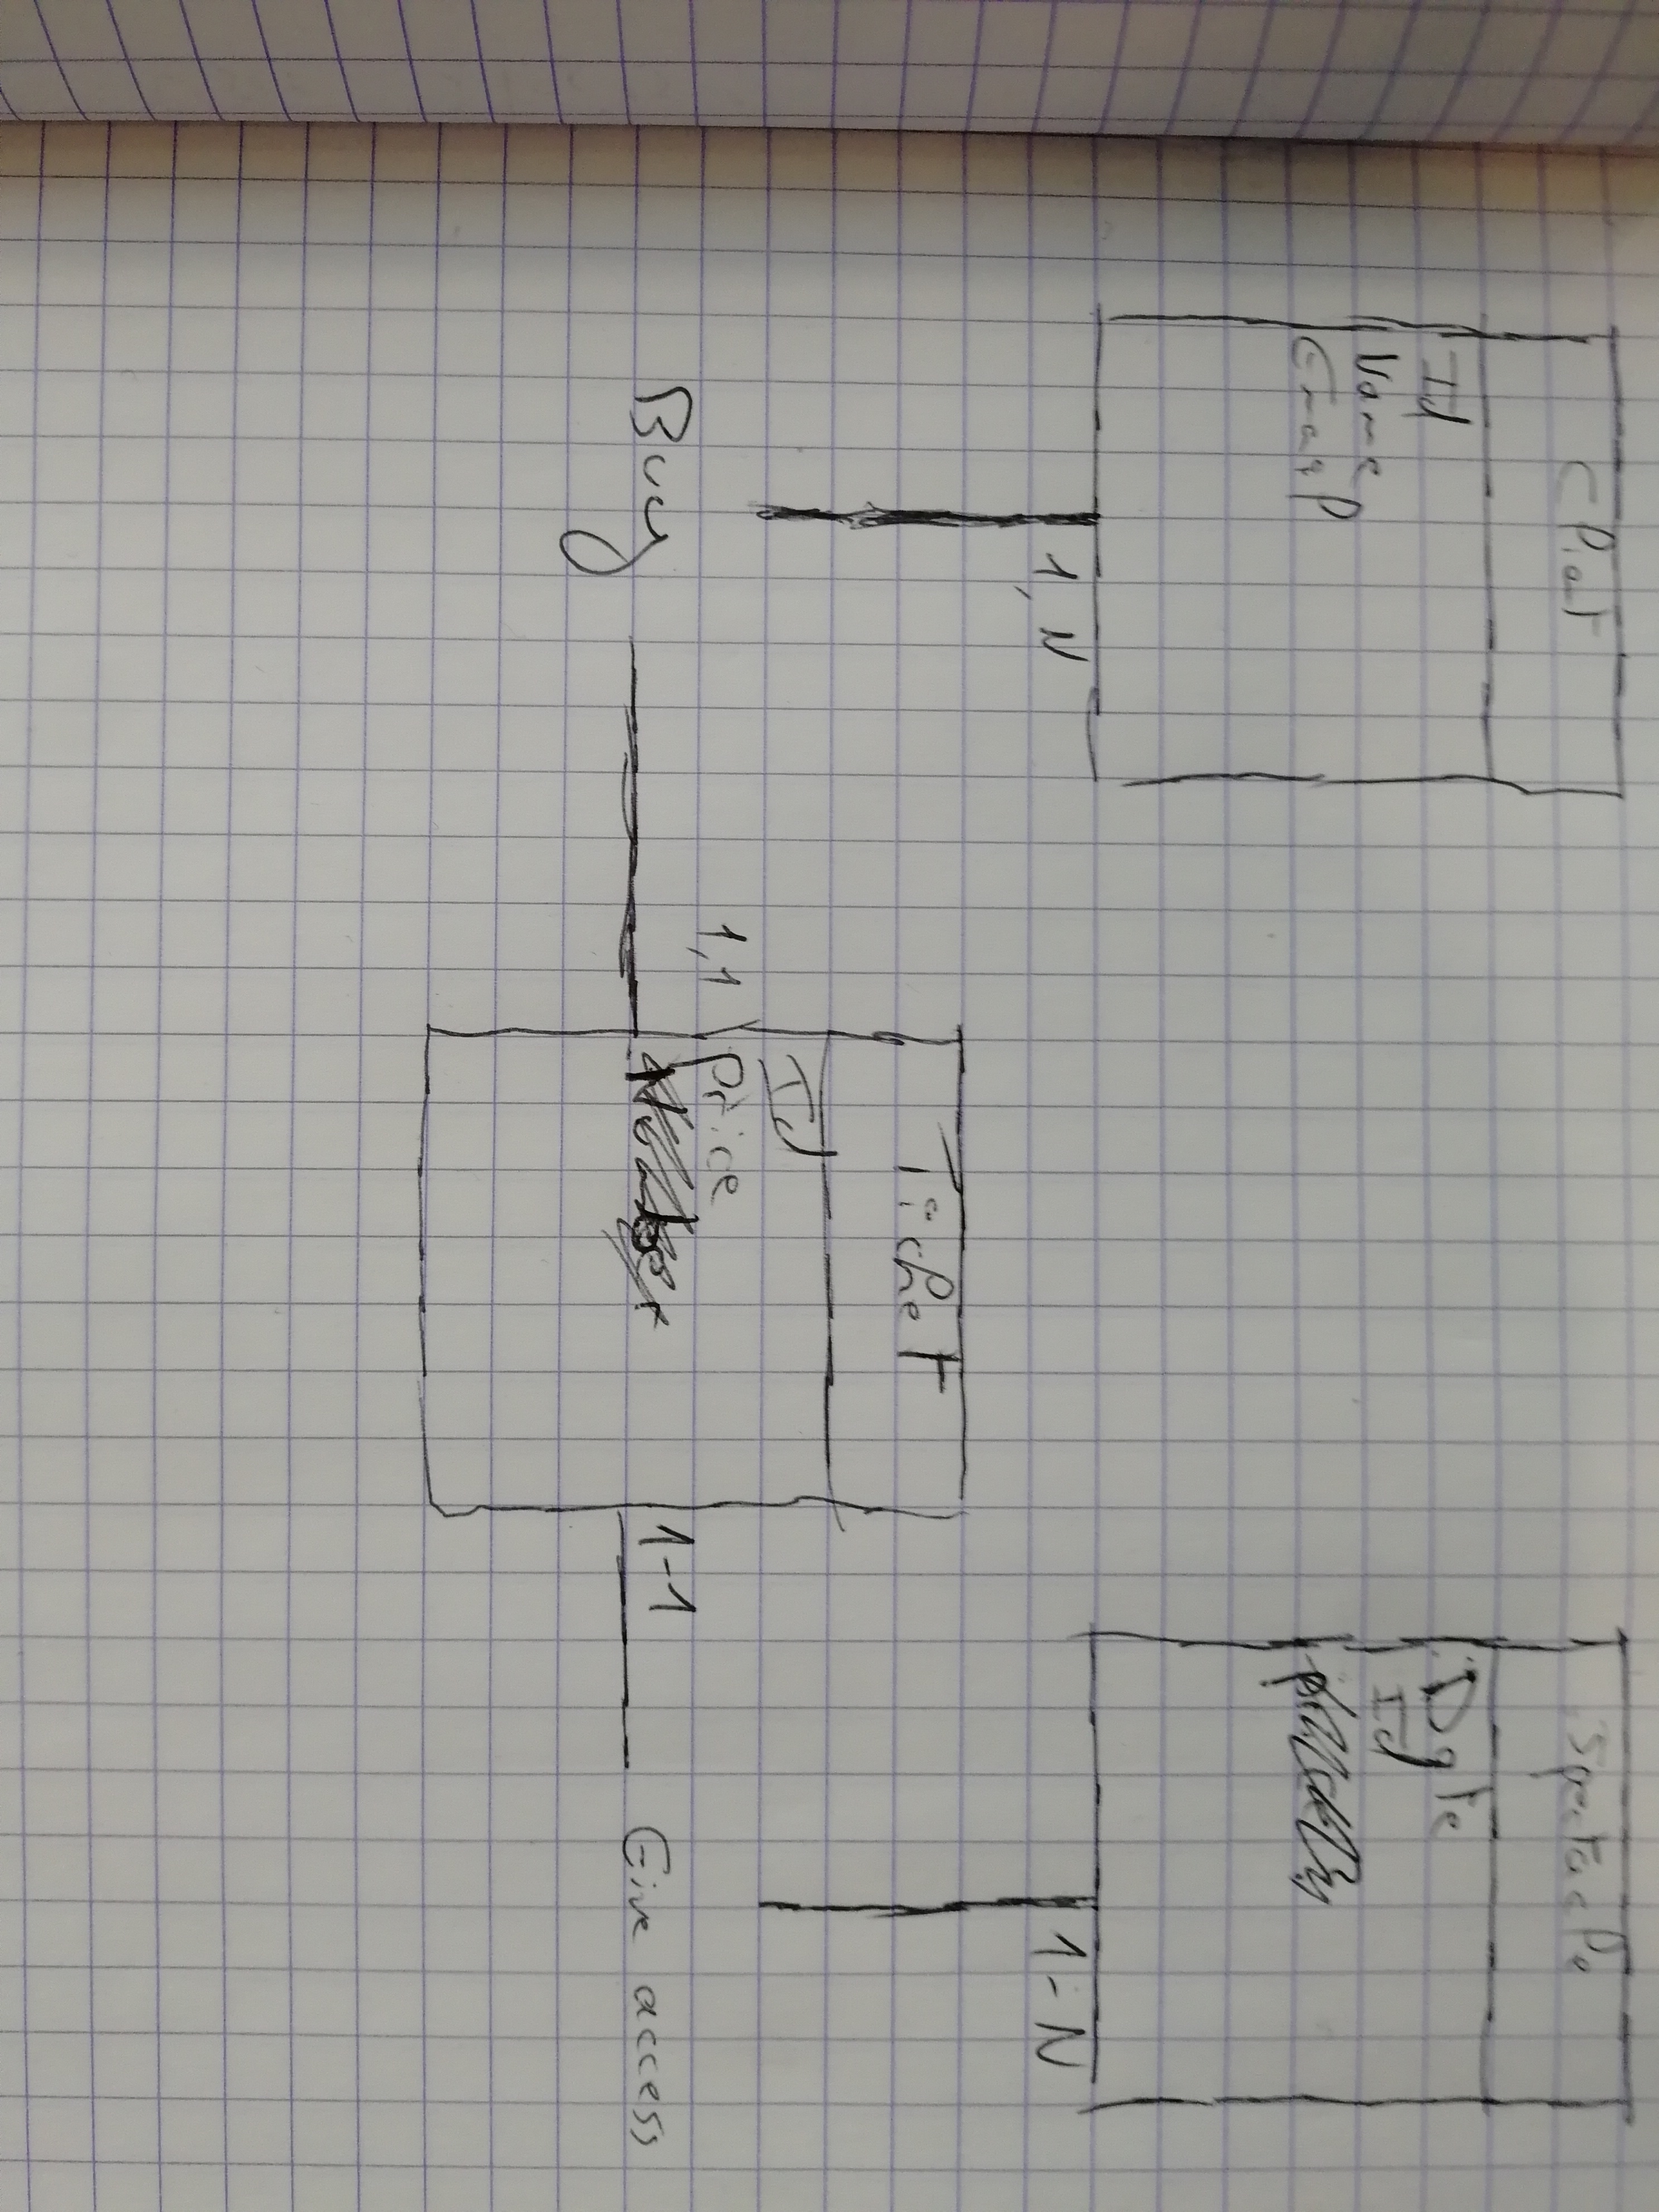 Client
Id
Name
Email
1,N
Buy
1,1
Ticket
Id
Price
1-1
Give access
Spectacle
Date
Id
1-N